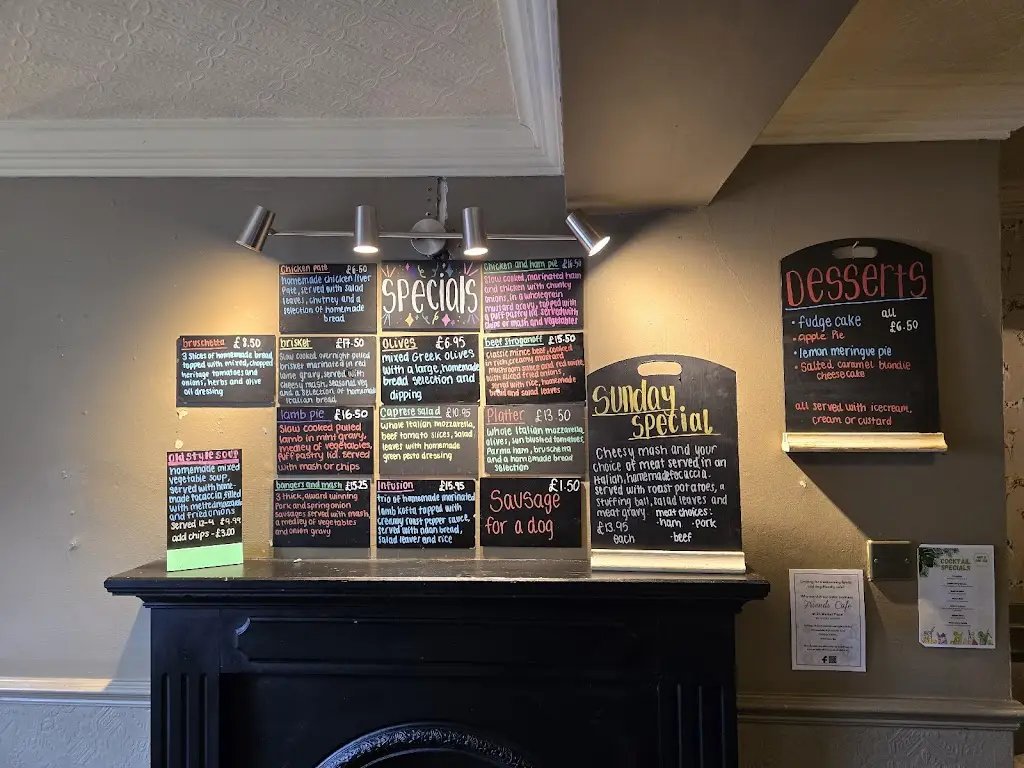 Chicken pate £6.50
homemade chicken liver
Pate, served with salad
leaves, chutney and a
selection of homemade
bread
specials
Chicken and ham pie £16.50
Slow cooked, marinated ham
and chicken with chunky
onions, in a wholegrain
mustard gravy, topped with
a puff pastry lid. served with
chips or mash and vegetables
bruschetta £8.50
3 slices of homemade bread
topped with roasted, chopped
heritage tomatoes and
onions, herbs and olive
oil dressing
brisket £17.50
Slow cooked overnight pulled
brisket marinated in red
wine gravy, served with
Cheesy mash, seasonal veg
and a selection of homemade
italian bread
olives £6.95
mixed Greek olives
with a large, homemade
bread selection and
dipping
beef stroganoff £15.50
Classic mince beef, cooked
in rich, creamy mustard
mushroom sauce and red wine
with sliced fried onions,
served with rice, homemade
bread and salad leaves
lamb pie £16.50
Slow cooked pulled
lamb in mint gravy,
medley of vegetables,
puff pastry lid. served
with mash or chips
Caprese salad £10.95
Whole Italian mozzarella,
beef tomato slices, salad
leaves with homemade
green pesto dressing
Platter £13.50
Whole Italian mozzarella,
olives, sun blushed tomatoes,
Parma ham, bruschetta
and a homemade bread
selection
bangers and mash £15.25
3 thick, award winning
Pork and spring onion
sausages served with mash,
a medley of vegetables
and onion gravy
Infusion £15.95
trio of homemade marinated
lamb kofta topped with
creamy roast pepper sauce,
served with naan bread,
salad leaves and rice
£1.50
Sausage
for a dog
old style soup
homemade mixed
vegetable soup,
served with home-
made focaccia, filled
with melted mozzarella
and fried onions
served 12-4 £9.99
add chips - £3.00
Sunday
special
Cheesy mash and your
choice of meat served in an
Italian, homemade focaccia.
served with roast potatoes, a
stuffing ball, salad leaves and
meat gravy. meat choices:
£13.95 ·ham ·pork
each ·beef
Desserts
· fudge cake all
· apple Pie £6.50
· lemon meringue pie
· Salted caramel blondie
cheesecake
all served with icecream,
cream or custard
Friends Cafe
COCKTAIL
SPECIALS